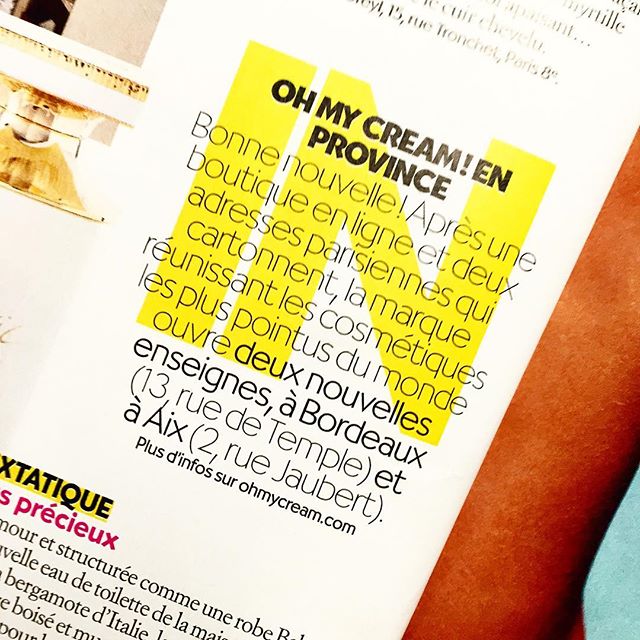 apaisant…
le cuir chevelu.
15, rue Tronchet, Paris 8e.
myrtille
IN
OH MY CREAM! EN
PROVINCE
Bonne nouvelle! Après une
boutique en ligne et deux
adresses parisiennes qui
cartonnent, la marque
réunissant les cosmétiques
les plus pointus du monde
ouvre deux nouvelles
enseignes, à Bordeaux
(13, rue de Temple) et
à Aix (2, rue Jaubert).
Plus d'infos sur ohmycream.com
XTATIQUE
s précieux
mour et structurée comme une robe
velle eau de toilette de la mais
bergamote d'Italie,
e boisé et mu
pour